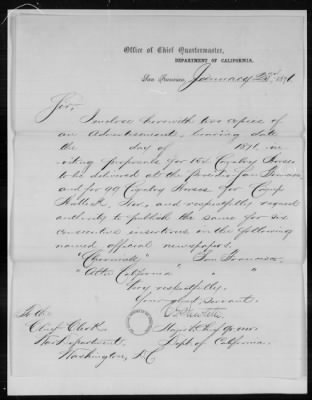 Office of Chief Quartermaster,
DEPARTMENT OF CALIFORNIA,
San Francisco, January 23d 1871
Sir:
I enclose herewith two copies of
an Advertisement, bearing date
the day of 1871, in-
viting proposals for 154 Cavalry Horses
to be delivered at the Presidio San Francisco
and for 99 Cavalry Horses for Camp
Halleck, Nev, and respectfully request
authority to publish the same for six
consecutive insertions in the following
named official newspapers.
"Chronicle" San Francisco.
"Alta California" " "
Very respectfully,
Your obed. servant.
To the
Chief Clerk
War Department,
Dept of California.
Washington, D.C